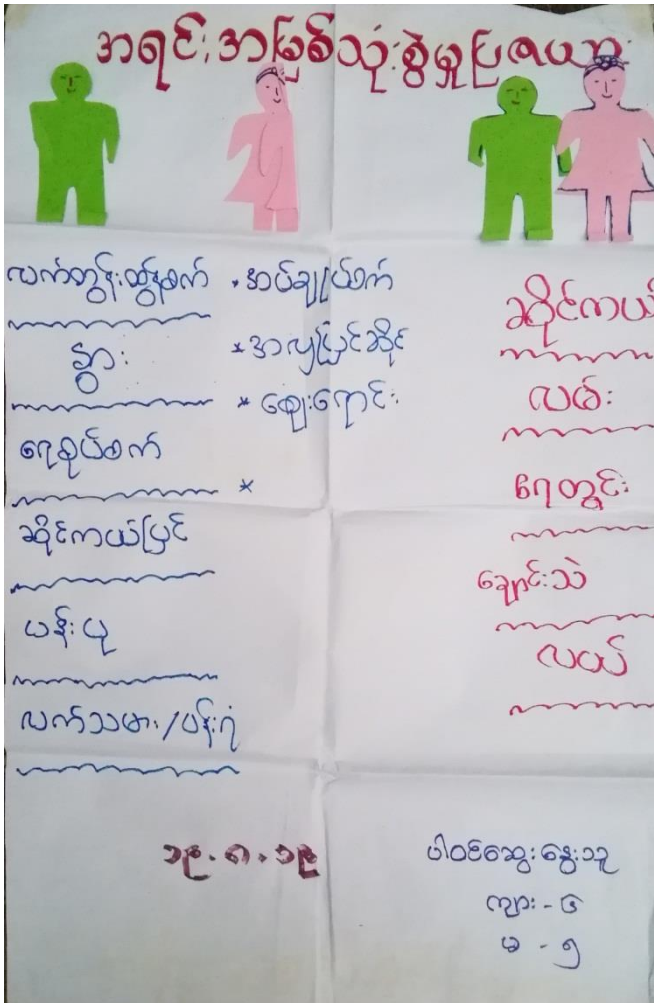 အရင်းအမြစ်သုံးစွဲမှုပြဇယား
လက်တွန်းထွန်စက်
နွား
ရေစုပ်စက်
ဆိုင်ကယ်ပြင်
ပန်းပု
လက်သမား/ပန်းရံ
* အပ်ချုပ်စက်
* အလှပြင်ဆိုင်
* ဈေးရောင်း
*
ဆိုင်ကယ်
လမ်း
ရေတွင်း
ချောင်းသဲ
လယ်
၁၉.၈.၁၉
ပါဝင်ဆွေးနွေးသူ
ကျား - ၆
မ - ၅